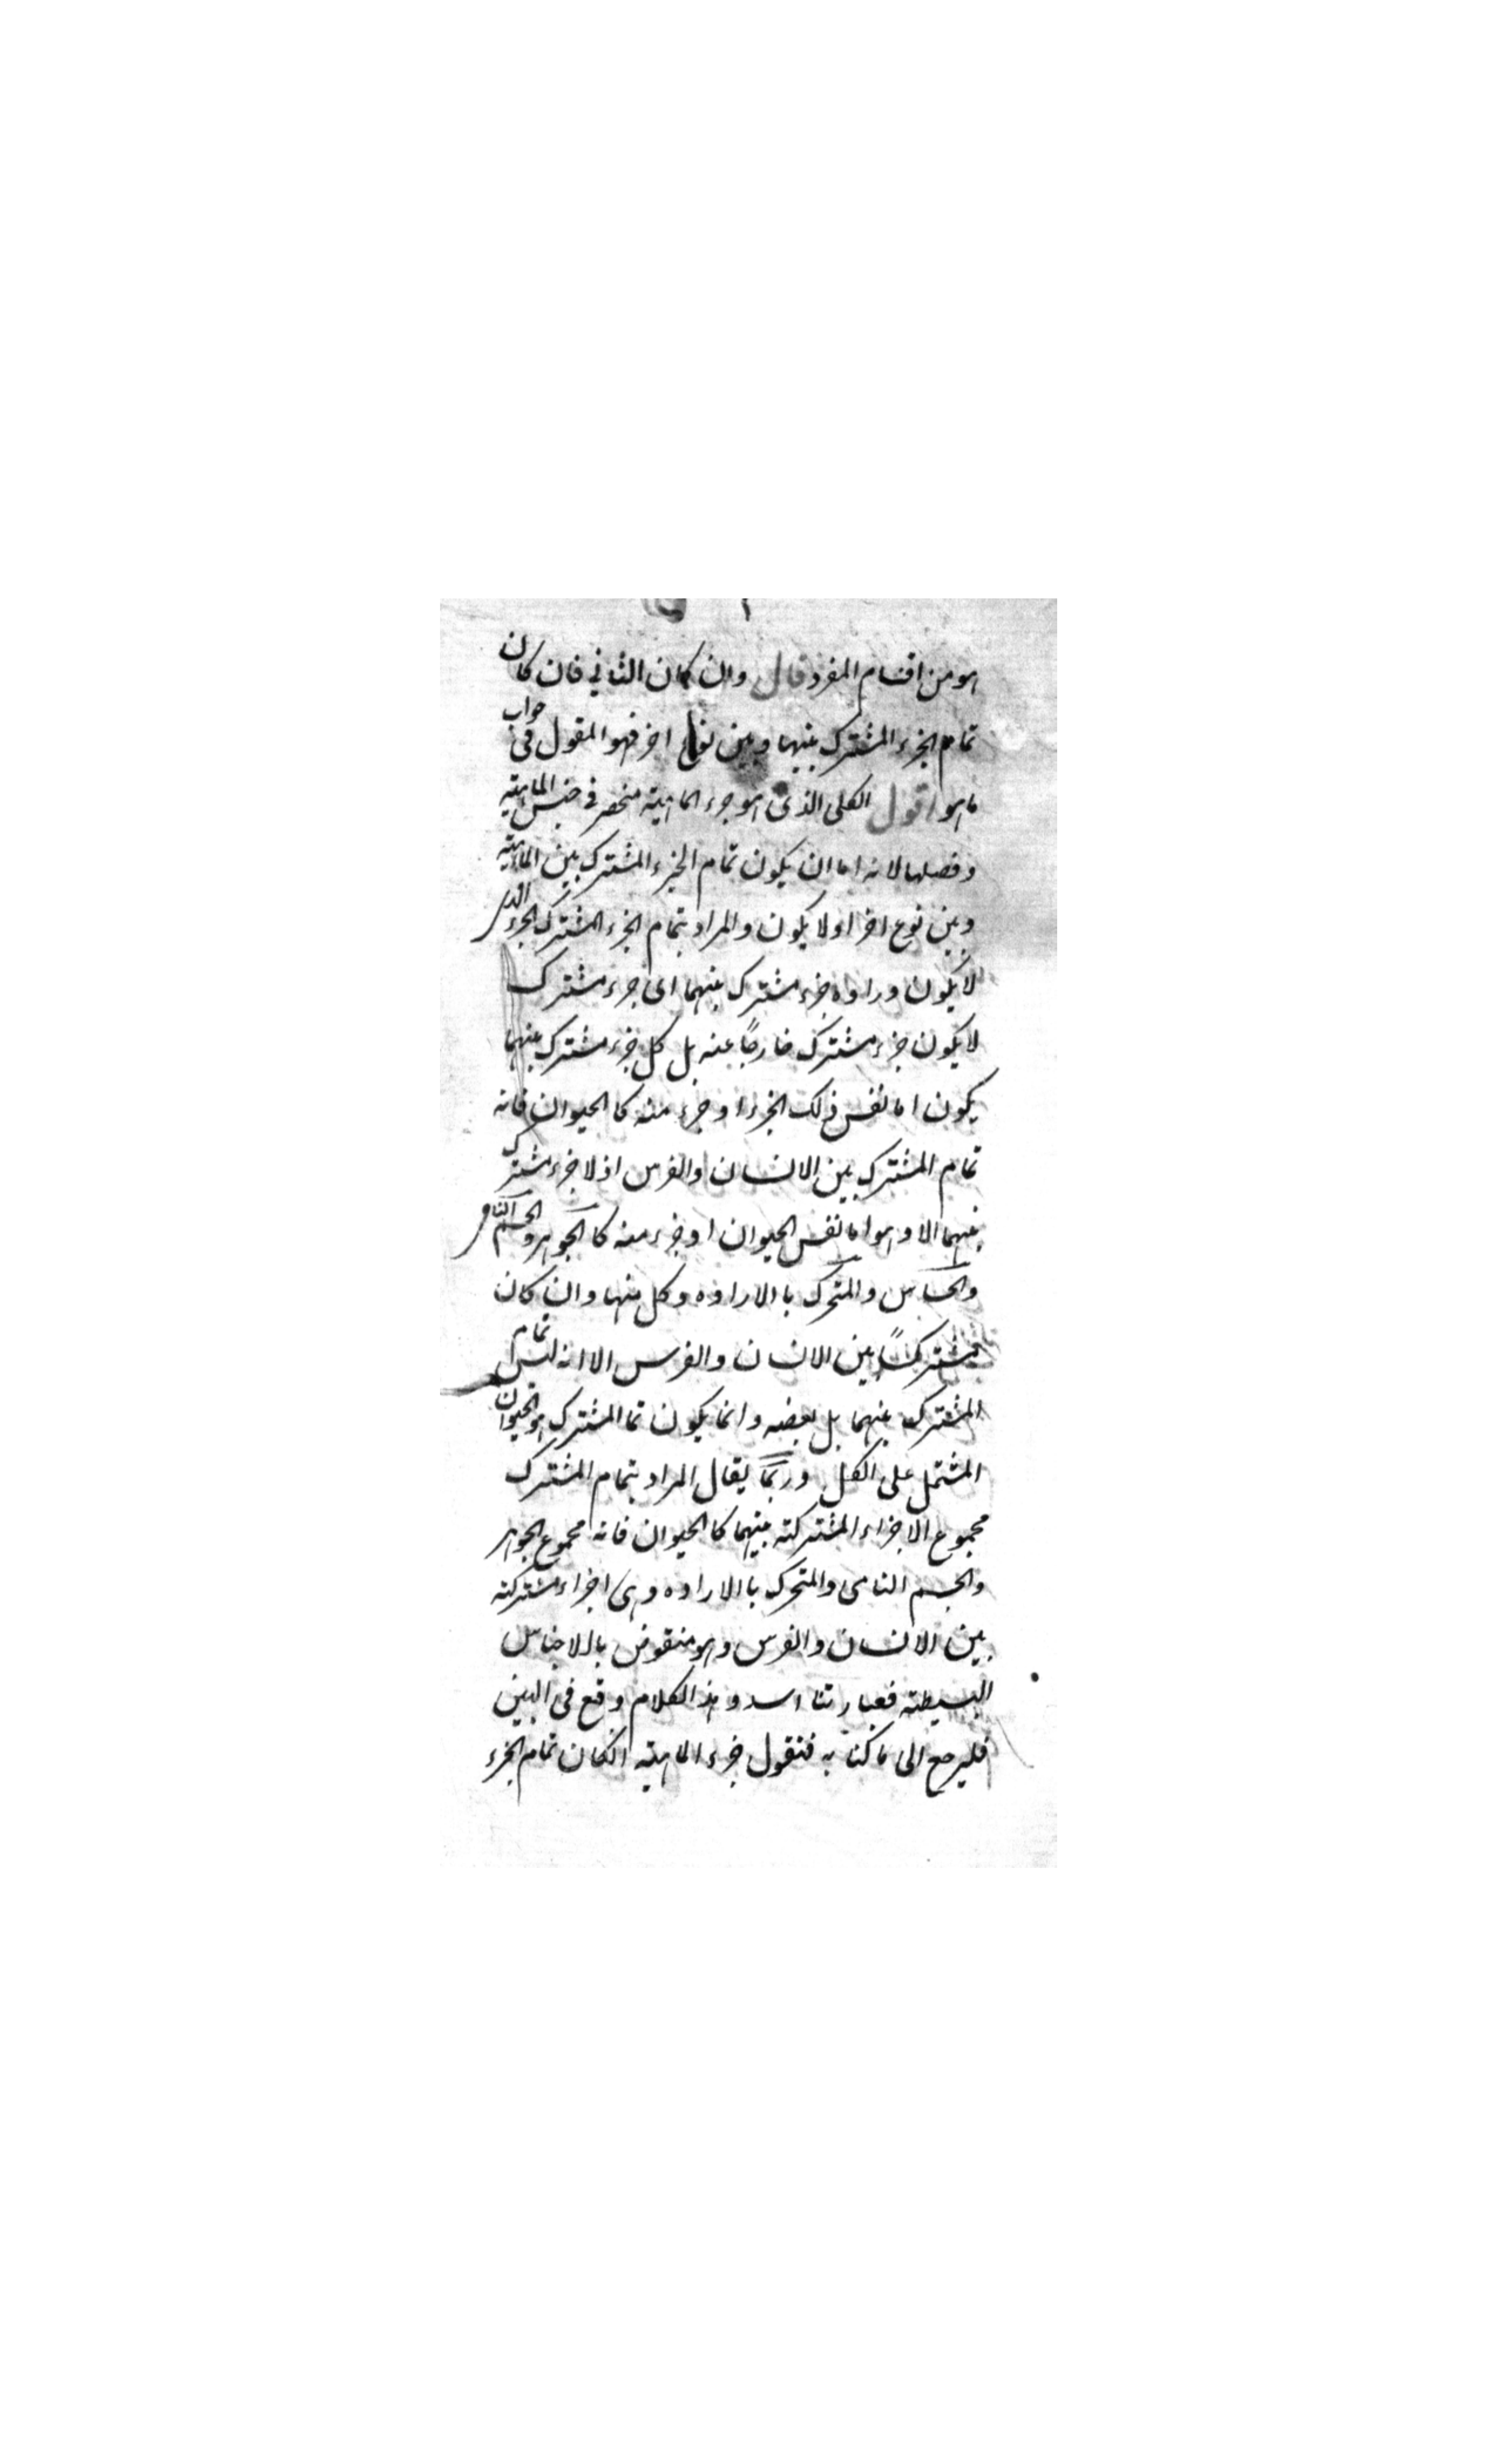 هو من اقسام المفرد قال وان كان الثاني فان كان
تمام الجزء المشترك بينها وبين نوع اخر فهو المقول في جواب
ما هو اقول الكلي الذي هو جزء الماهية منحصر في جنس الماهية
وفصلها لانه اما ان يكون تمام الجزء المشترك بين الماهية
وبين نوع اخر اولا يكون والمراد بتمام الجزء المشترك الجزء الذي
لا يكون وراءه جزء مشترك بينهما اى جزء مشترك
لا يكون جزء مشترك خارجًا عنه بل كل جزء مشترك بينهما
يكون اما نفس ذلك الجزء او جزء منه كالحيوان فانه
تمام المشترك بين الانسان والفرس اذ لا جزء مشترك
بينهما الا وهو اما نفس الحيوان او جزء منه كالجوهر والجسم النامي
والحساس والمتحرك باالاراده وكل منها وان كان
مشتركًا بين الانسان والفرس الا انه ليس تمام
المشترك بينهما بل بعضه وانما يكون تما المشترك هو الحيوان
المشتمل على الكل وربما يقال المراد بتمام المشترك
مجموع الاجزاء المشتركة بينهما كالحيوان فانه مجموع الجوهر
والجسم النامى والمتحرك باالاراده وهى اجزاء مشتركة
بين الانسان والفرس وهو منقوض باالاجناس
البسيطة فعبارتنا اسد وهذ الكلام وقع فى البين
فليرجع الى ما كنا به فنقول جزء الماهية انكان تمام الجزء